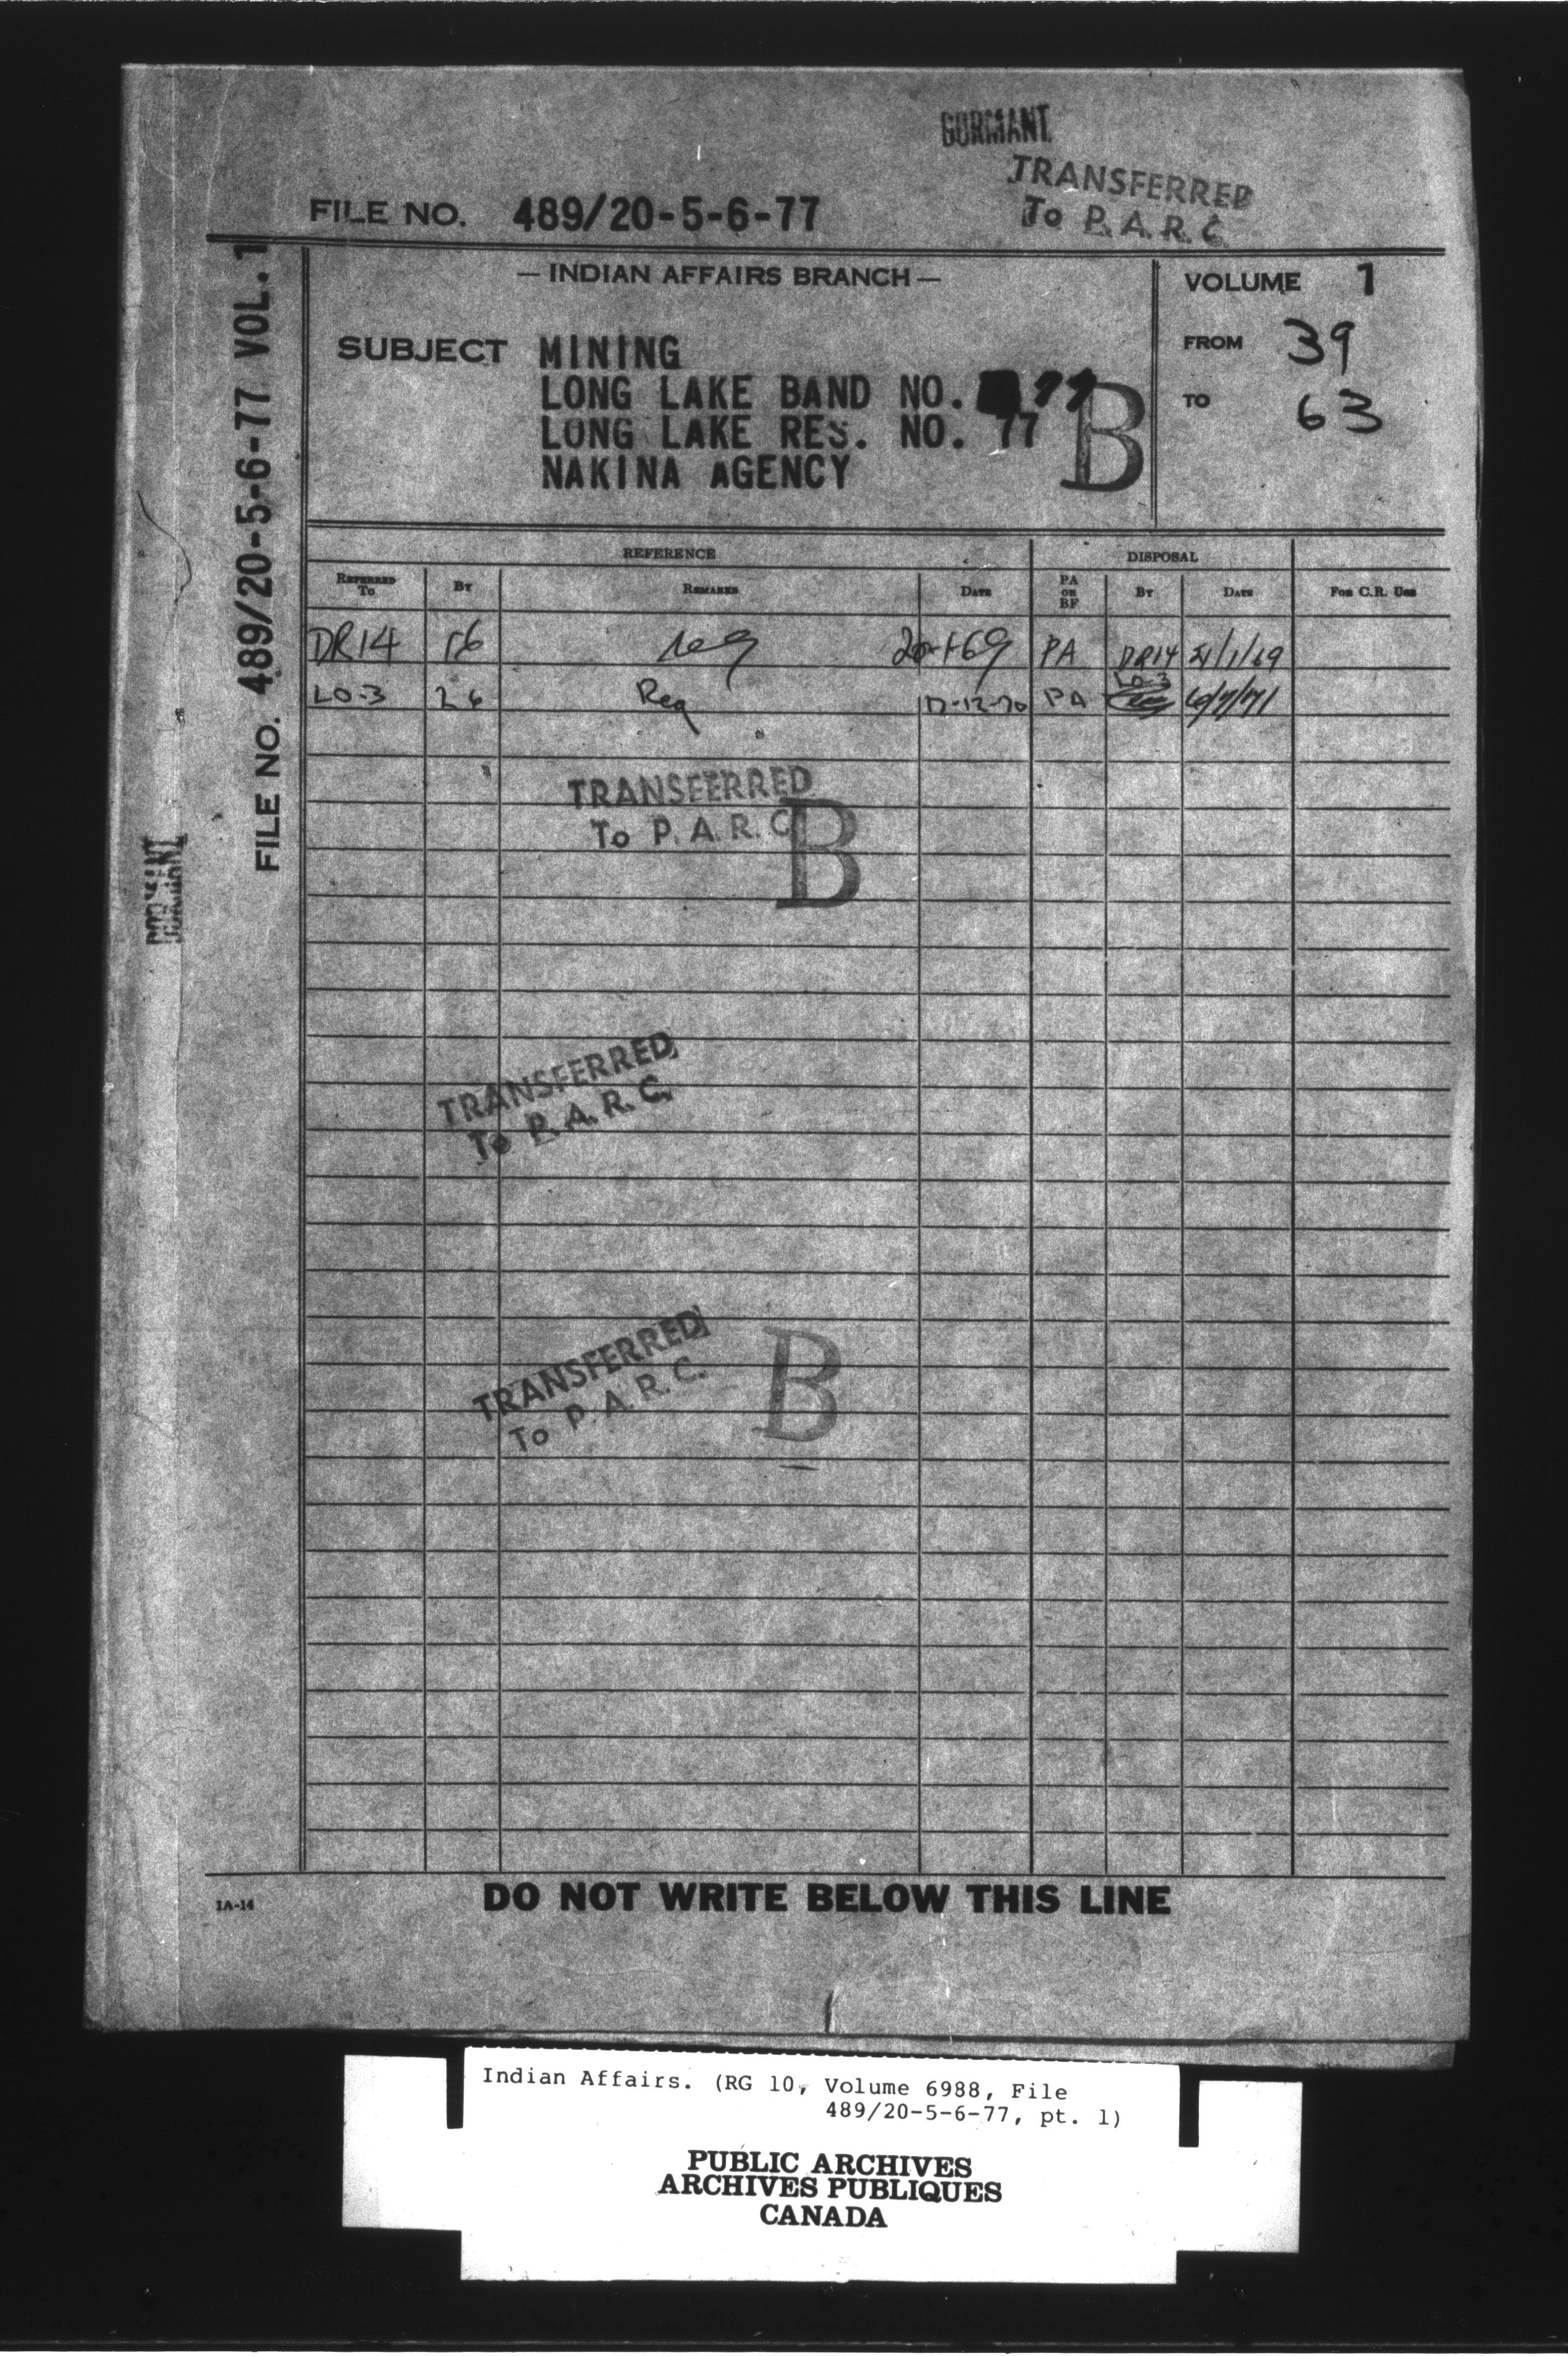 DORMANT
TRANSFERRED
To P.A.R.C.
FILE NO. 489/20-5-6-77
FILE NO. 489/20-5-6-77 VOL. 1
DORMANT
— INDIAN AFFAIRS BRANCH —
VOLUME 1
SUBJECT MINING
LONG LAKE BAND NO. 77
LONG LAKE RES. NO. 77
NAKINA AGENCY
B
FROM 39
TO 63
REFERENCE DISPOSAL
REFERRED TO BY REMARKS DATE PA OR BF BY DATE FOR C.R. USE
DR14 req 20-1-69 PA DR14 21/1/69
LO-3 26 Req 17-12-70 PA LO-3 6/7/71
TRANSFERRED
To P.A.R.C.
B
TRANSFERRED
To P.A.R.C.
TRANSFERRED
To P.A.R.C.
B
IA-14
DO NOT WRITE BELOW THIS LINE
Indian Affairs. (RG 10, Volume 6988, File
489/20-5-6-77, pt. 1)
PUBLIC ARCHIVES
ARCHIVES PUBLIQUES
CANADA